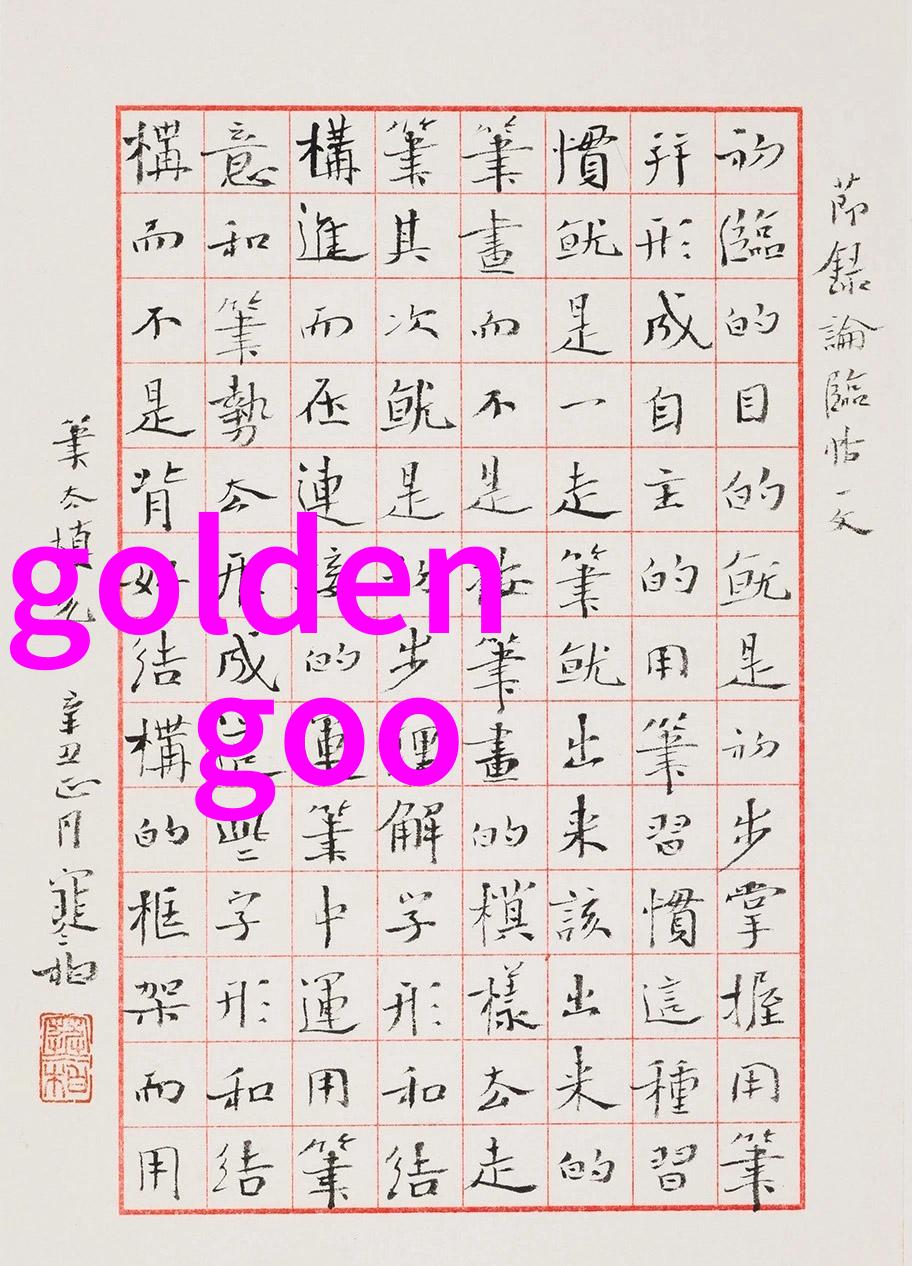 節録論臨帖一文
初臨的目的就是初步掌握用筆
并形成自主的用筆習慣這種習
慣就是一走筆就出来該出来的
筆畫而不是按筆畫的模樣去走
筆其次就是初步理解学形和結
構進而在連接的運筆中運用筆
意和筆勢去形成這些字形和結
構而不是背好結構的框架而用
筆去填充 辛丑正月
golden
goo